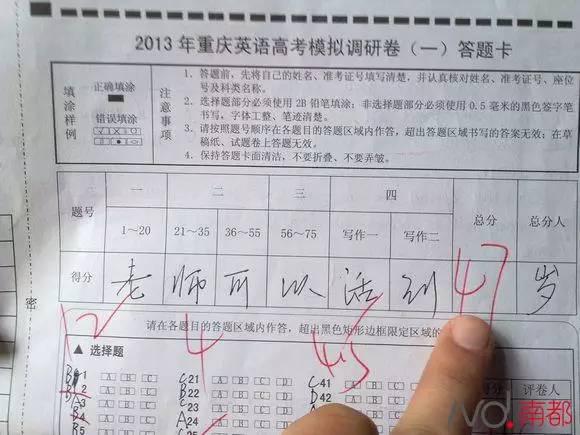 2013年重庆英语高考模拟调研卷（一）答题卡
填涂样例
正确填涂
错误填涂
注意事项
1. 答题前，先将自己的姓名、准考证号填写清楚，并认真核对姓名、准考证号、座位
号及科类名称。
2. 选择题部分必须使用2B铅笔填涂；非选择题部分必须使用0.5毫米的黑色签字笔
书写，字体工整、笔迹清楚。
3. 请按照题号顺序在各题目的答题区域内作答，超出答题区域书写的答案无效；在草
稿纸、试题卷上答题无效。
4. 保持答题卡面清洁，不要折叠、不要弄皱。
题号 一 二 三 四 总分 总分人
1~20 21~35 36~55 56~75 写作一 写作二
得分 老 师 可 以 活 到 47 岁
密
12 4 4.5
请在各题目的答题区域内作答，超出黑色矩形边框限定区域的
▲ 选择题
评卷人
B 1 A B C C 21 A B C D C 41 A B C
B 2 A B C B 22 A B C D D 42 A B
A 3 C 23
B 4 A 24
B 5 25
南都